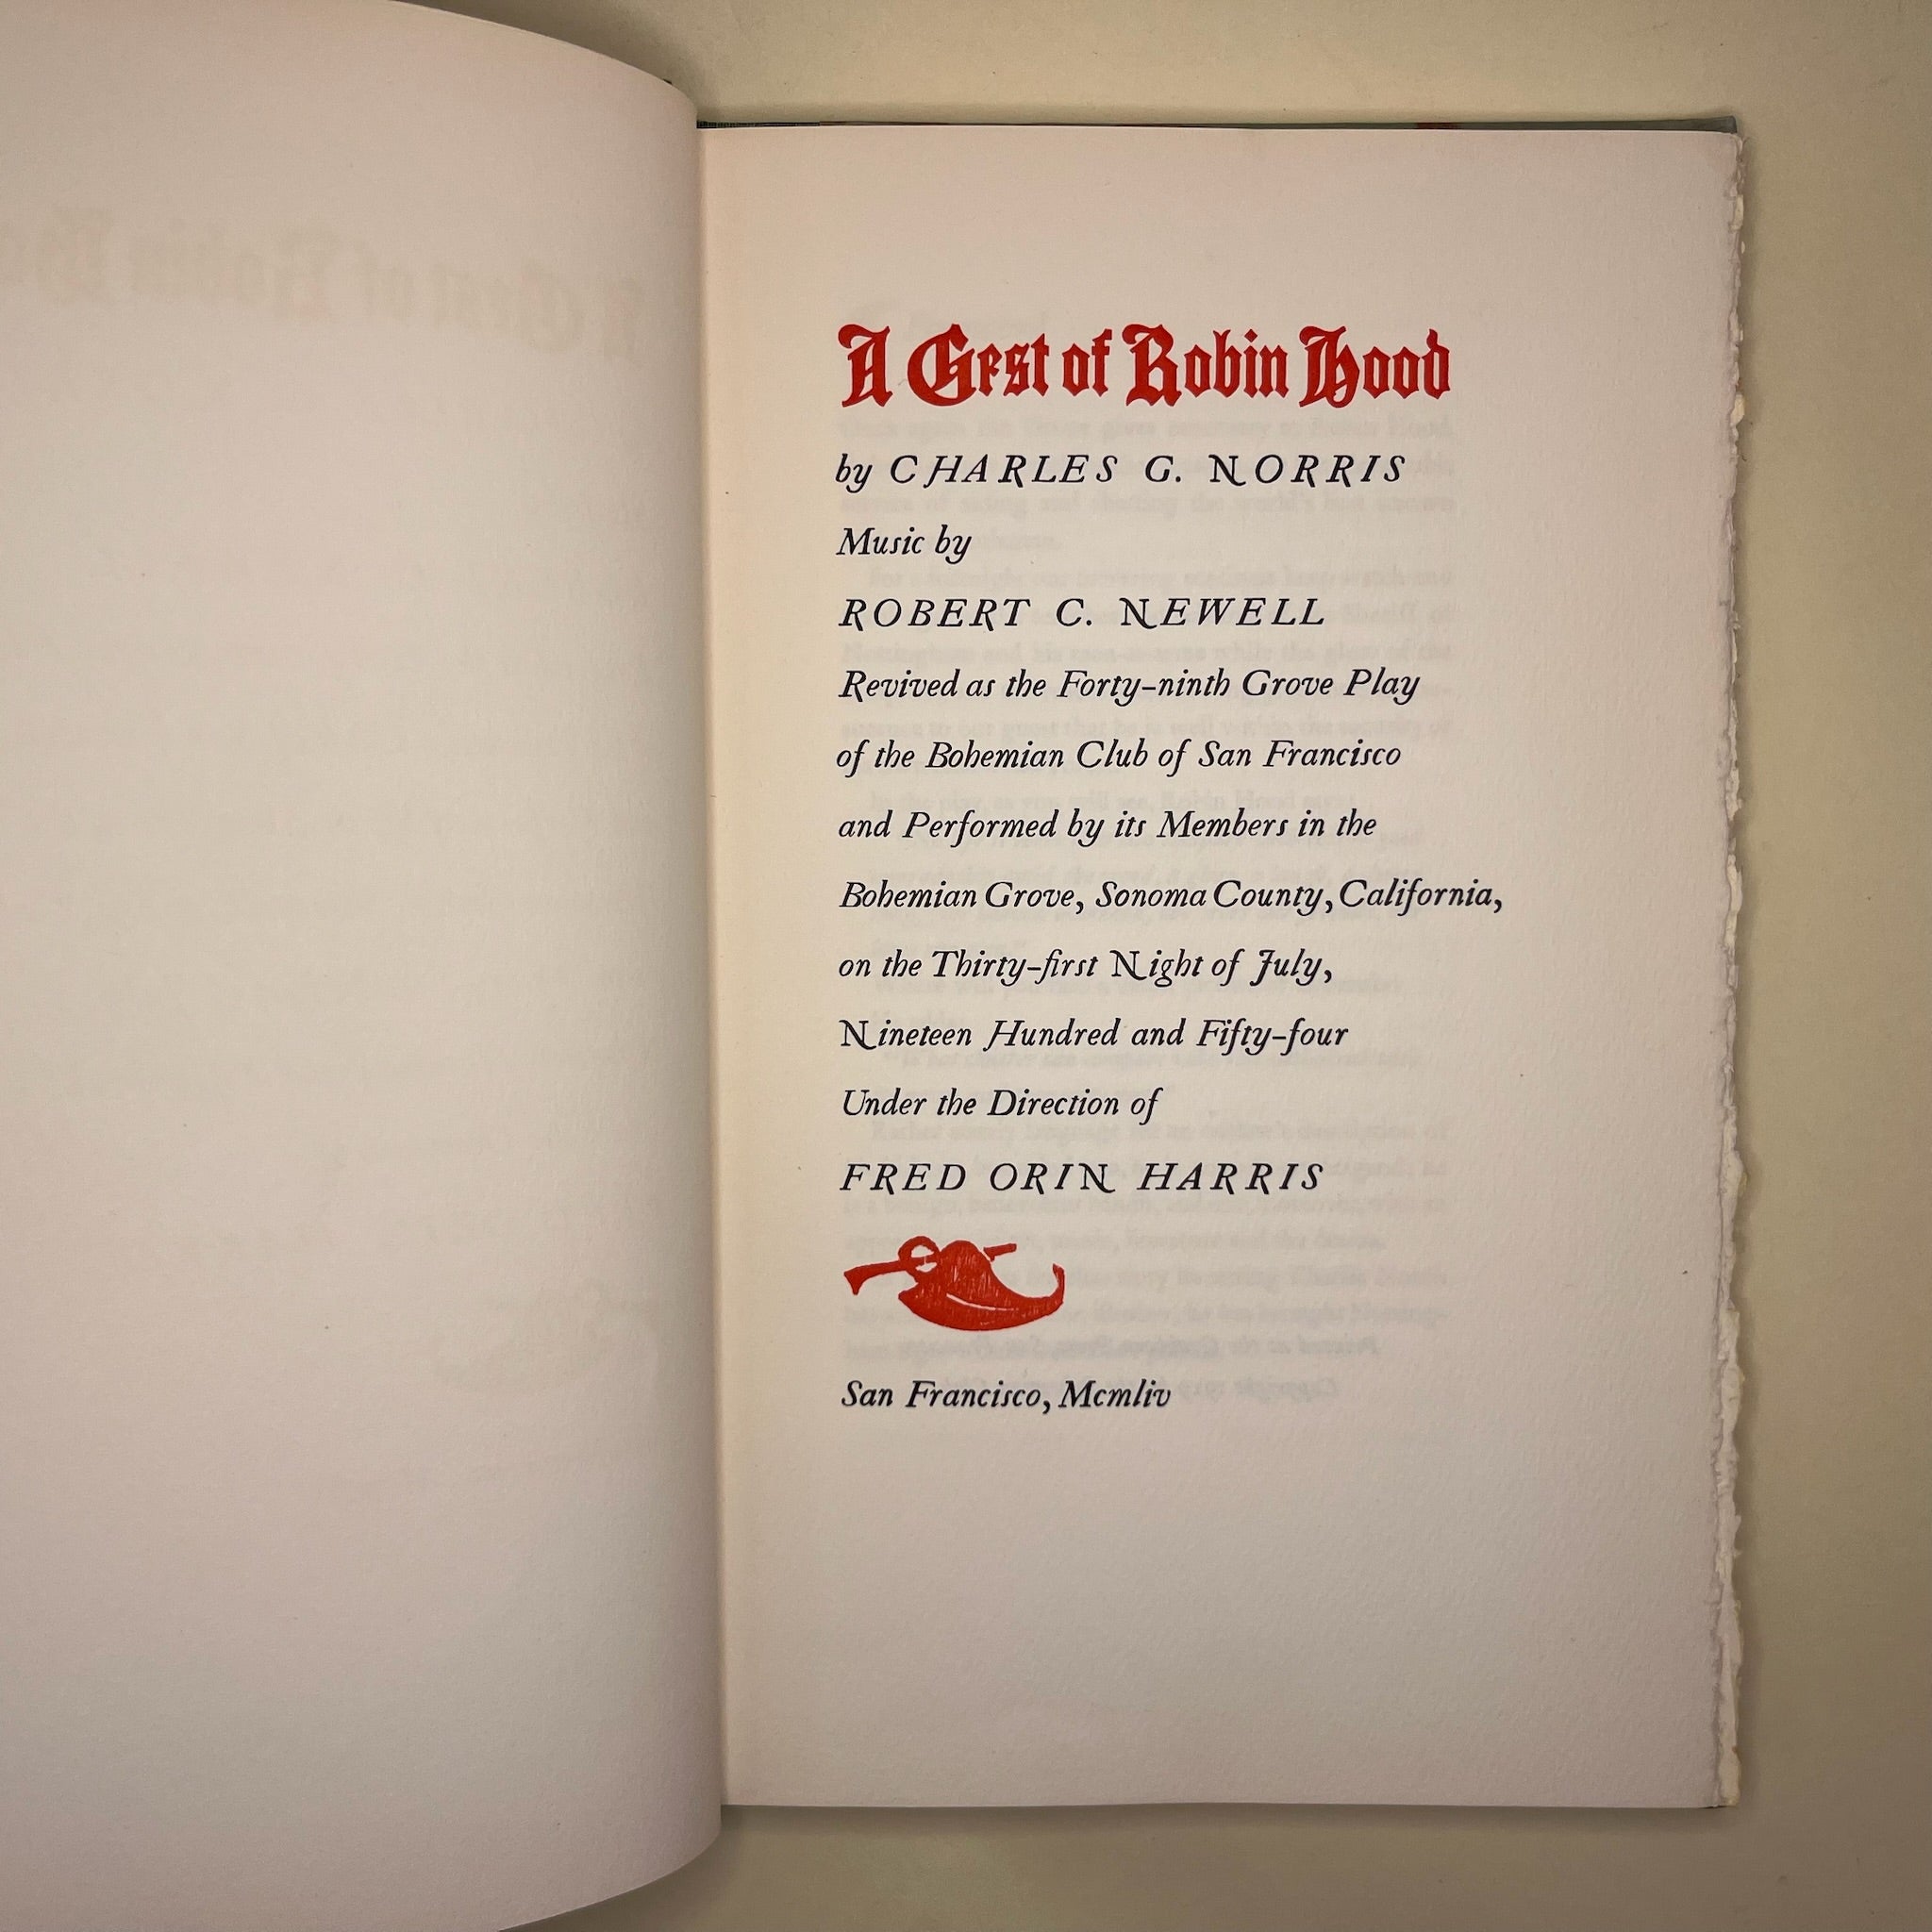 A Gest of Robin Hood
by CHARLES G. NORRIS
Music by
ROBERT C. NEWELL
Revived as the Forty-ninth Grove Play
of the Bohemian Club of San Francisco
and Performed by its Members in the
Bohemian Grove, Sonoma County, California,
on the Thirty-first Night of July,
Nineteen Hundred and Fifty-four
Under the Direction of
FRED ORIN HARRIS
San Francisco, Mcmliv